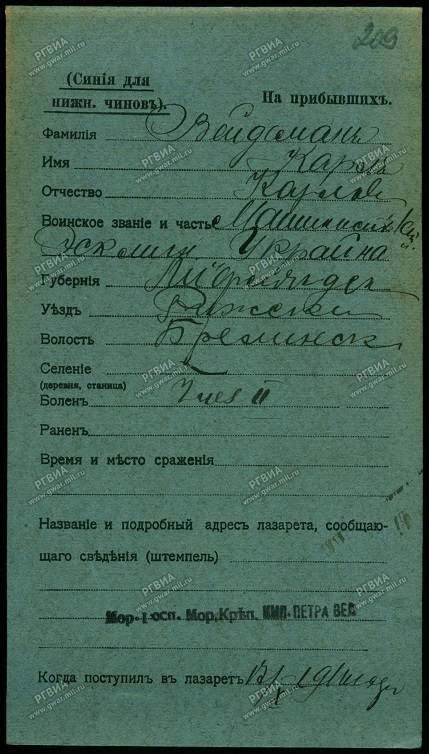 209
(Синія для
нижн. чиновъ).
На прибывшихъ.
Фамилія Вейдеманъ
Имя Карлъ
Отчество Карлов
Воинское званіе и часть Машинист
Украйна
Губернія
Уѣздъ Рижски
Волость
Селеніе
(деревня, станица)
Боленъ II
Раненъ
Время и мѣсто сраженія
Названіе и подробный адресъ лазарета, сообщаю-
щаго свѣдѣнія (штемпель)
Мор. Госп. Мор. Крѣп. ИМП. ПЕТРА ВЕЛ
Когда поступилъ в лазаретъ
РГВИА
www.gwar.mil.ru